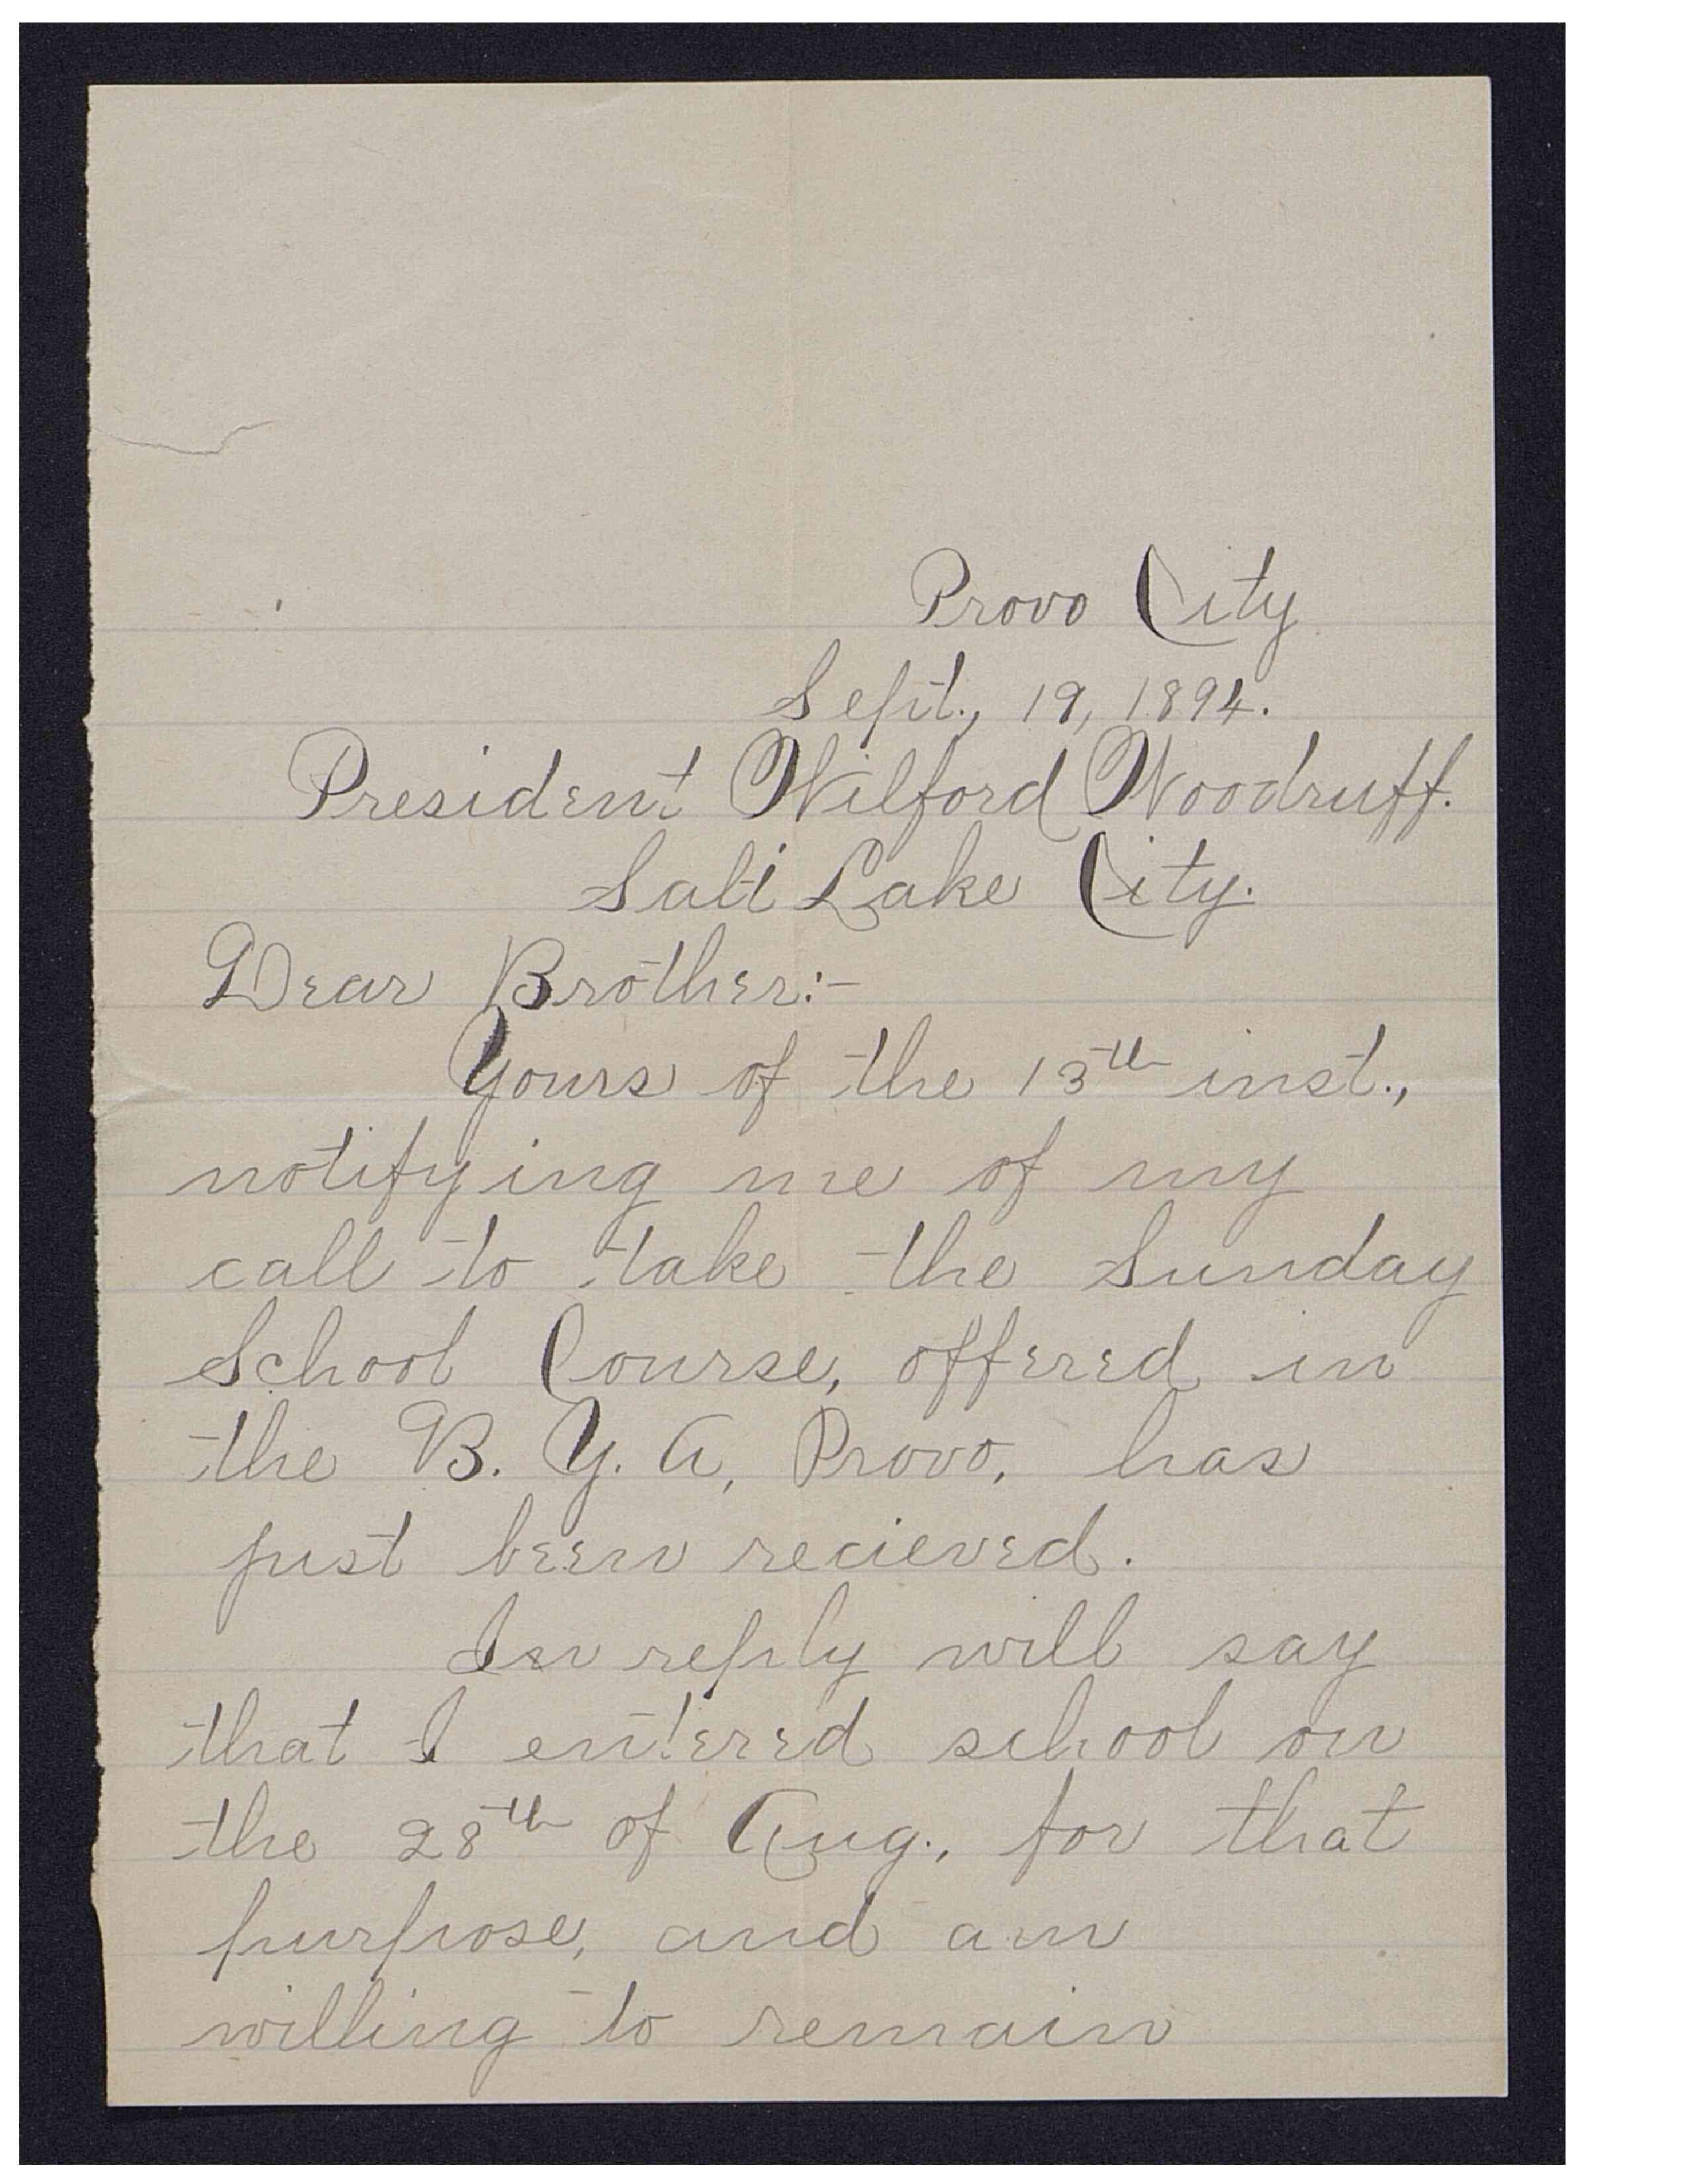 Provo City
Sept., 19, 1894.
President Wilford Woodruff.
Salt Lake City.
Dear Brother:-
Yours of the 13th inst.,
notifying me of my
call to take the Sunday
School Course, offered in
the B. Y. A, Provo, has
just been recieved.
In reply will say
that I entered school on
the 28th of Aug., for that
purpose, and am
willing to remain